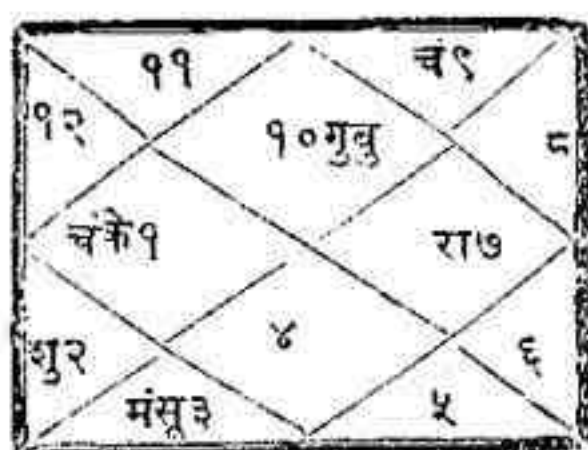 ११
चं९
१२
१०गुबु
८
चंके१
रा७
४
शु२
६
मंसू३
५